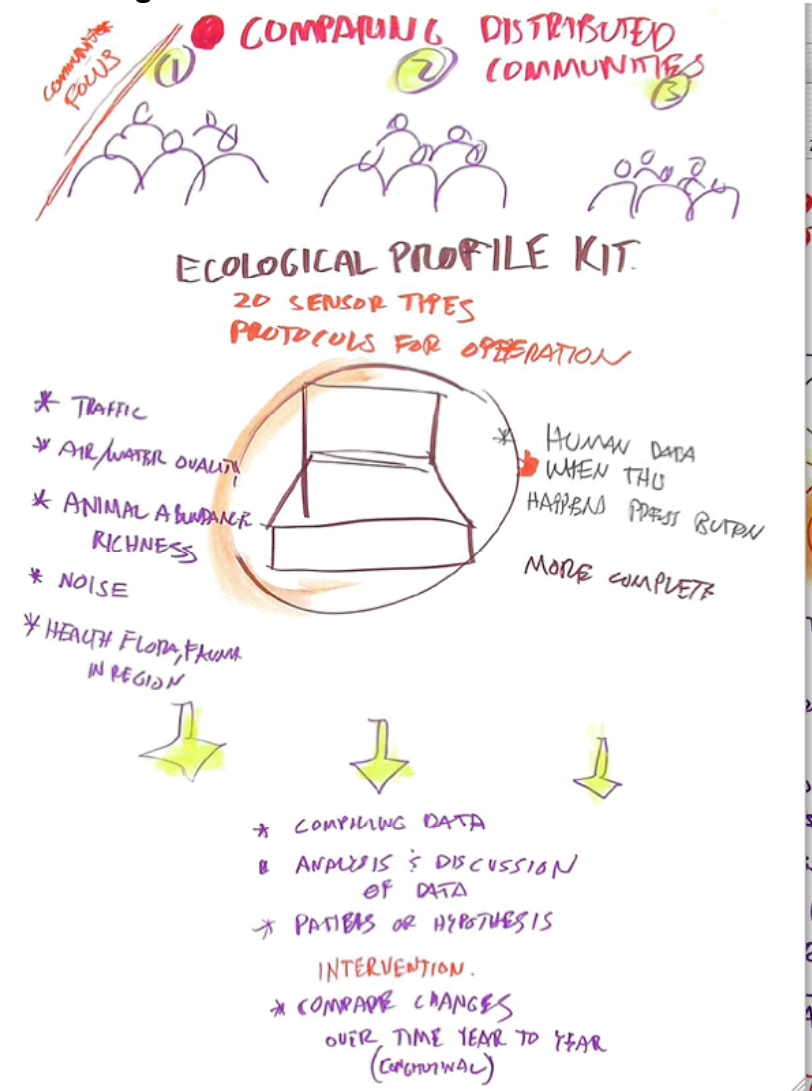 COMMUNITY
FOCUS
COMPARING DISTRIBUTED
COMMUNITIES
1
2
3
ECOLOGICAL PROFILE KIT.
20 SENSOR TYPES
PROTOCOLS FOR OPERATION
* TRAFFIC
* AIR/WATER QUALITY
* ANIMAL ABUNDANCE
RICHNESS
* NOISE
* HEALTH FLORA, FAUNA
IN REGION
* HUMAN DATA
WHEN THIS
HAPPENS PRESS BUTTON
MORE COMPLETE
* COMPILING DATA
* ANALYSIS & DISCUSSION
OF DATA
* PATTERNS OR HYPOTHESIS
INTERVENTION.
* COMPARE CHANGES
OVER TIME YEAR TO YEAR
(LONGITUDINAL)